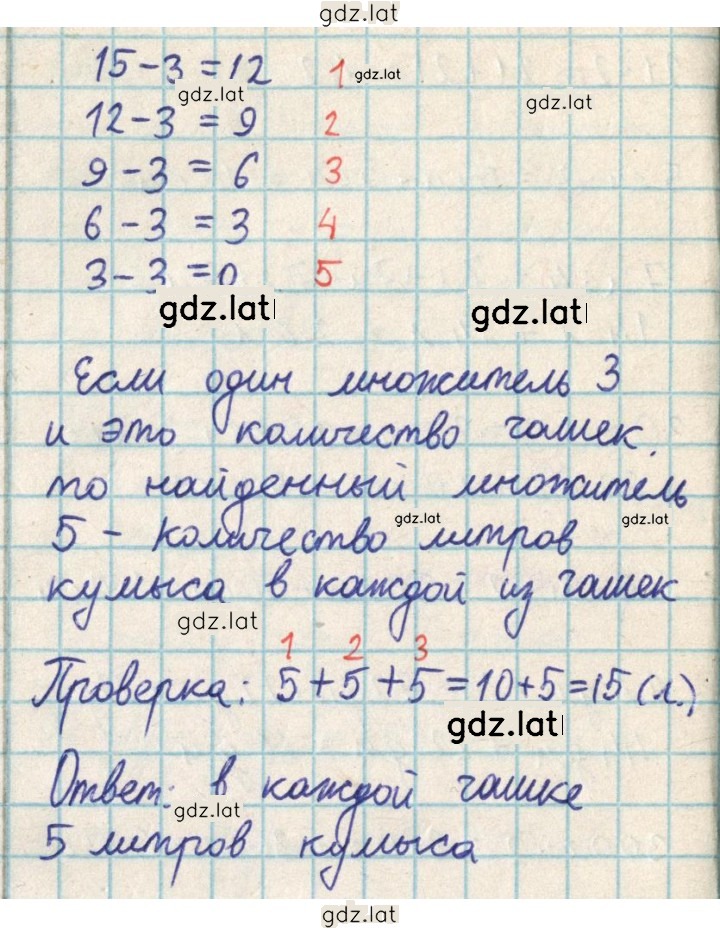 gdz.lat
15-3=12 1 gdz.lat
gdz.lat gdz.lat
12-3=9 2
9-3=6 3
6-3=3 4
3-3=0 5
gdz.lat gdz.lat
Если один множитель 3
и это количество чашек,
то найденный множитель
gdz.lat gdz.lat
5 - количество литров
кумыса в каждой из чашек
gdz.lat
1 2 3
Проверка: 5+5+5=10+5=15 (л.)
gdz.lat
Ответ: в каждой чашке
gdz.lat
5 литров кумыса
gdz.lat